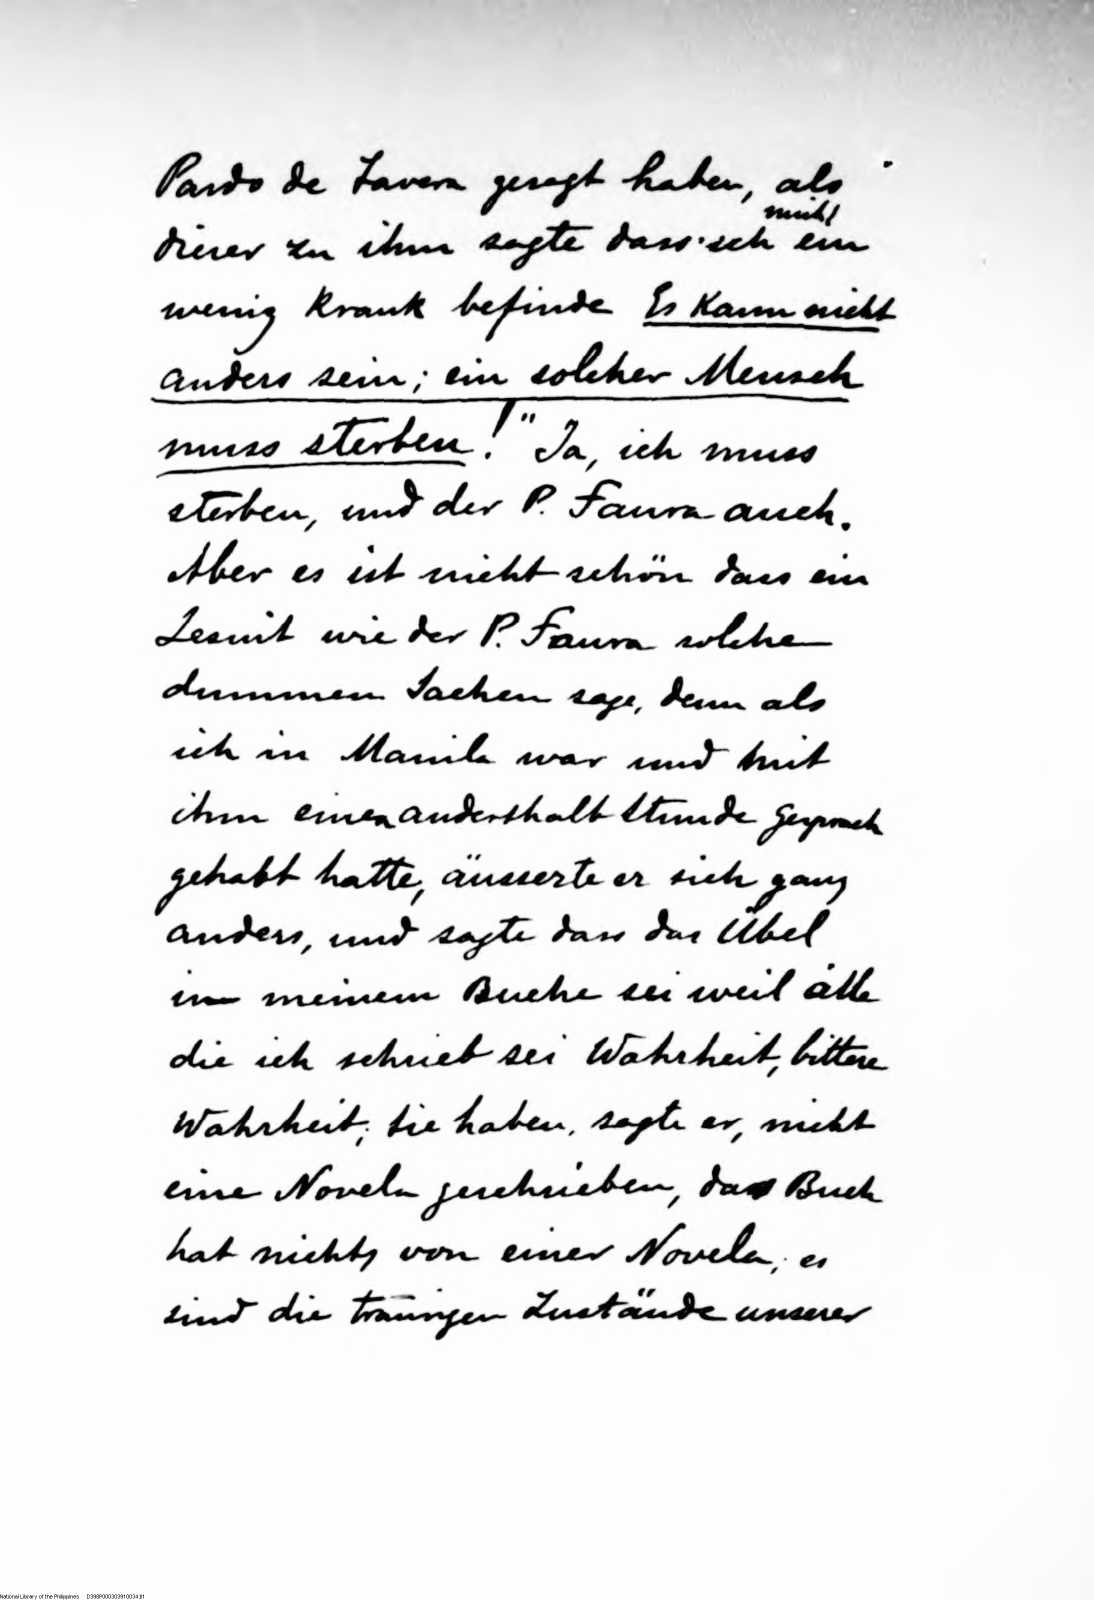 Pardo de Tavera gesagt haben, als
mich
dieser zu ihm sagte dass ich ein
wenig krank befinde Es kann nicht
anders sein; ein solcher Mensch
muss sterben!" Ja, ich muss
sterben, und der P. Faura auch.
Aber es ist nicht schön dass ein
Jesuit wie der P. Faura solche
dummen Sachen sage, denn als
ich in Manila war und mit
ihm einen anderthalb Stunde Gesprach
gehabt hatte, äusserte er sich ganz
anders, und sagte dass das Übel
in meinem Buche sei weil alle
die ich schrieb sei Wahrheit, bittere
Wahrheit; Sie haben, sagte er, nicht
eine Novela geschrieben, das Buch
hat nichts von einer Novela; es
sind die traurigen Zustände unserer
National Library of the Philippines D398P000303910034.tif